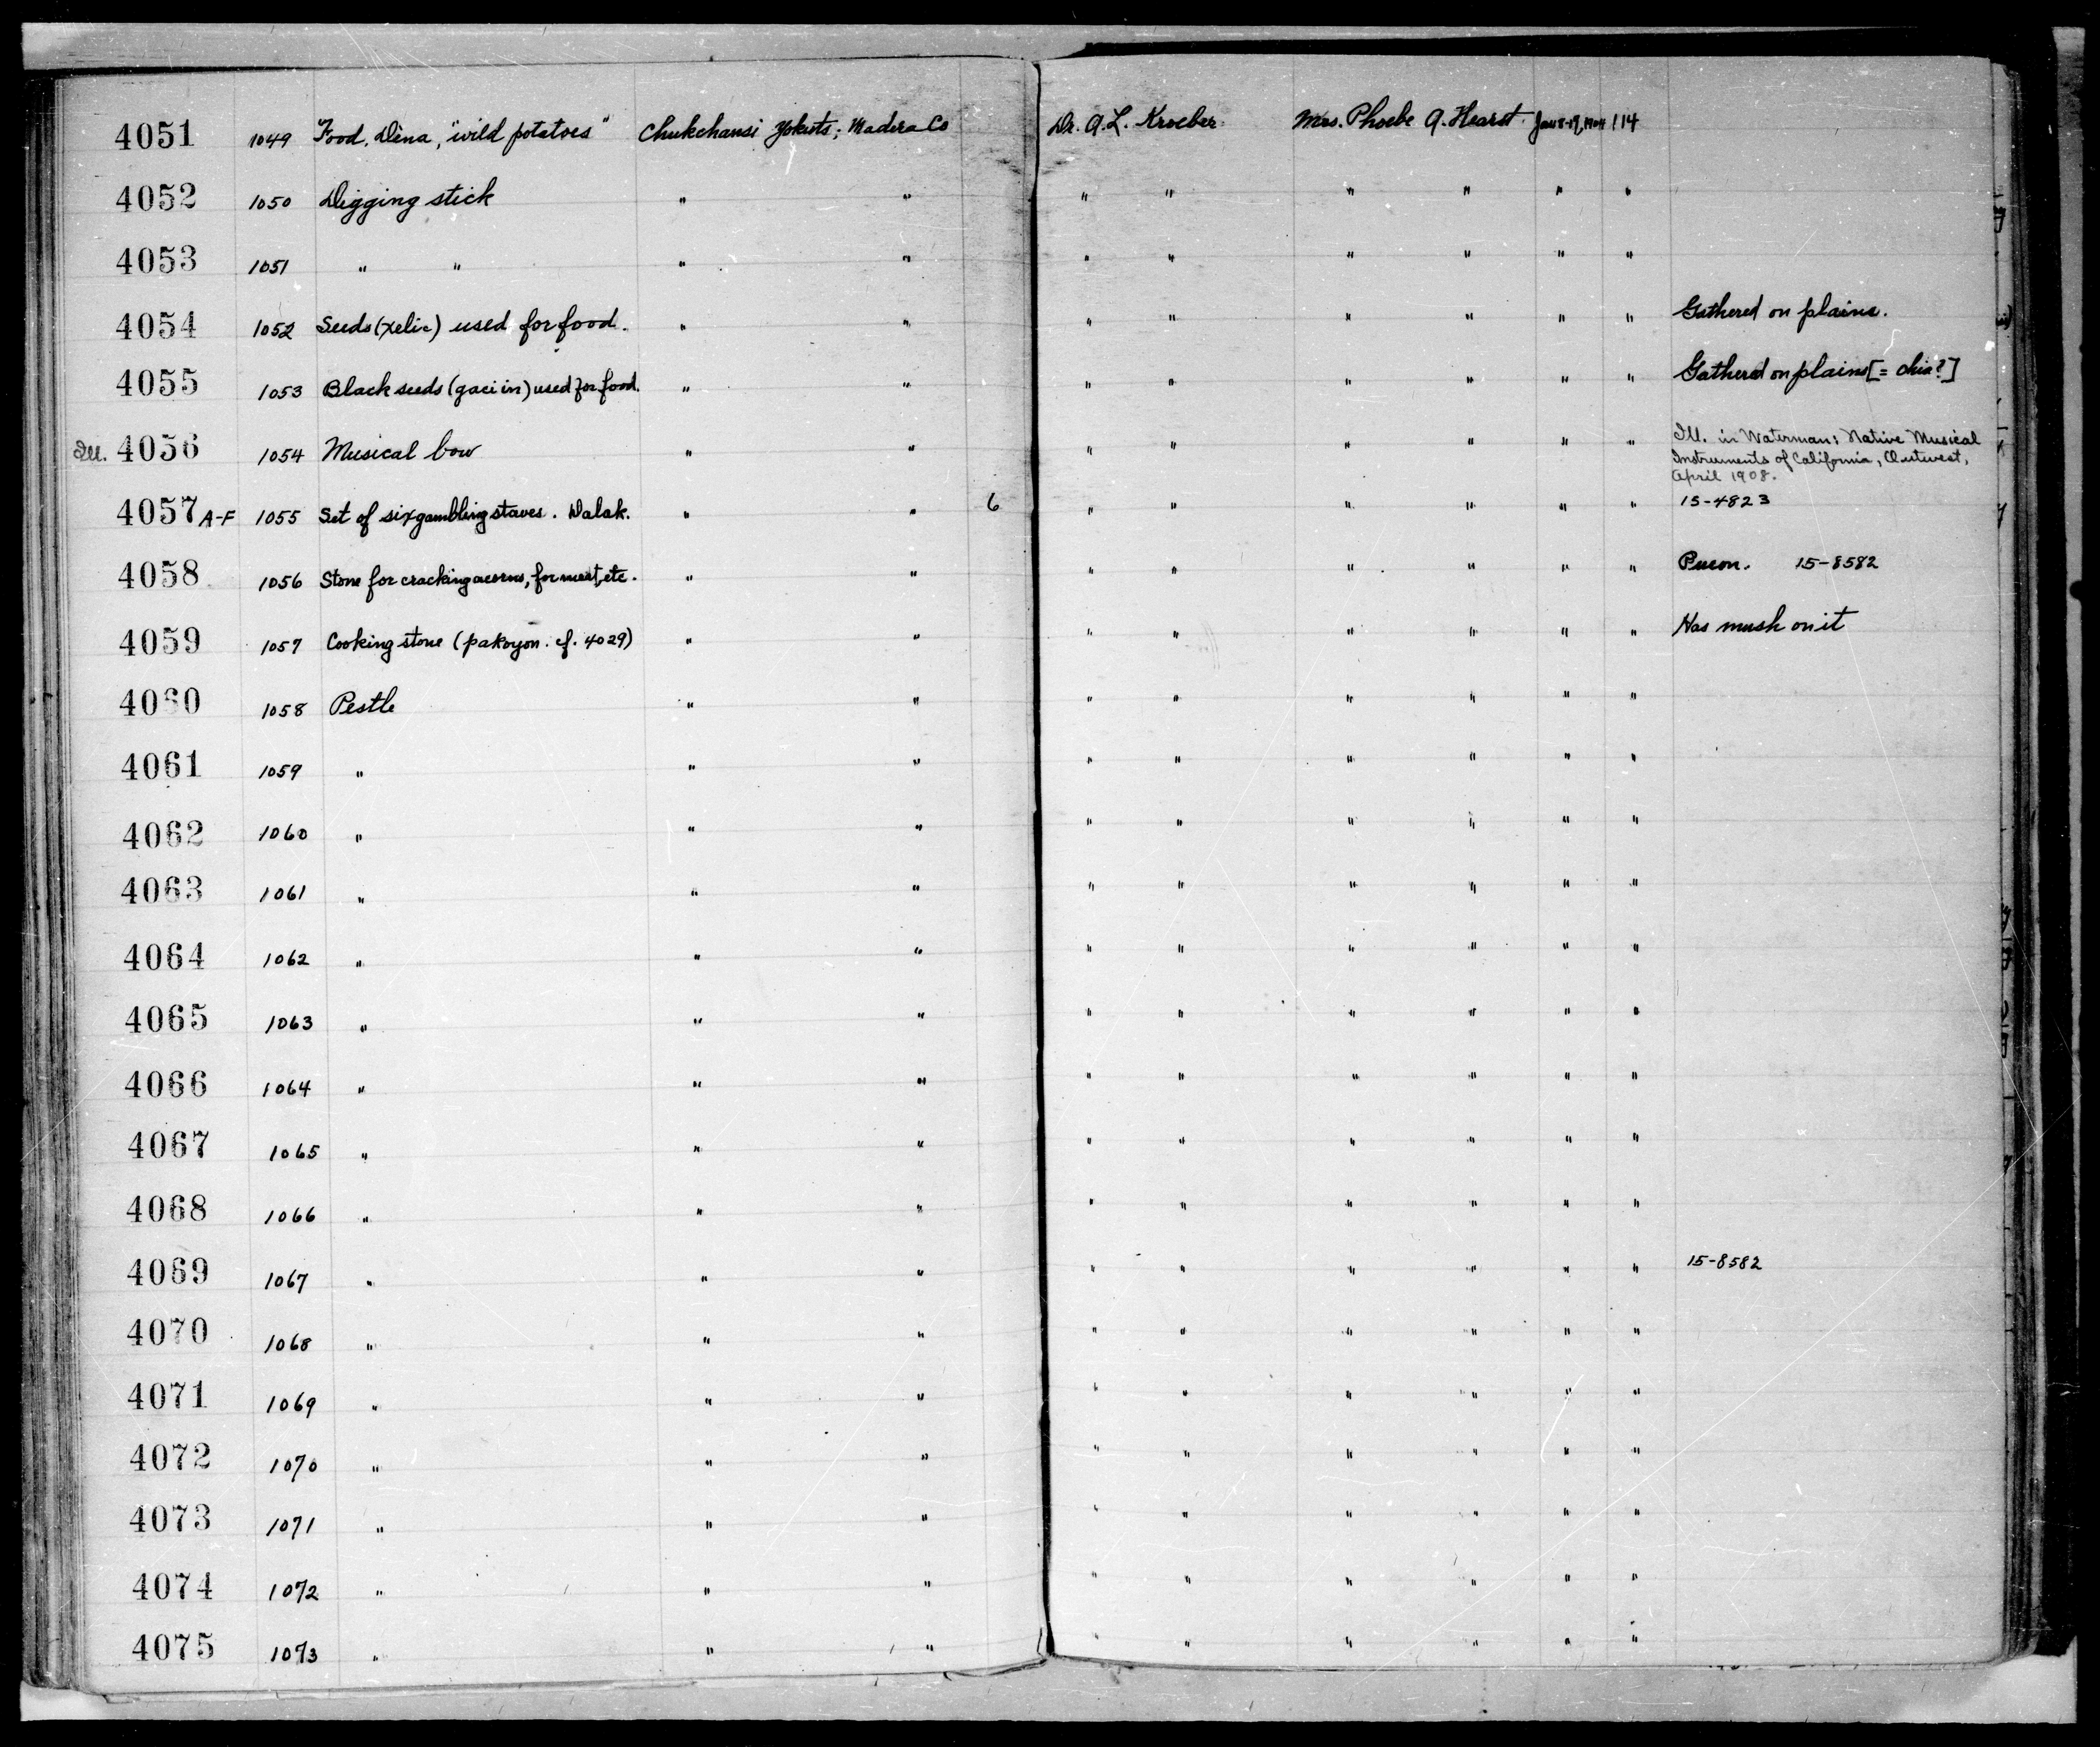 4051 1049 Food. Dena, "wild potatoes" Chukchansi Yokuts; Madera Co Dr. A.L. Kroeber Mrs. Phoebe A. Hearst 114
4052 1050 Digging stick " " " " " " " "
4053 1051 " " " " " " " " " "
4054 1052 Seeds (xelic) used for food. " " " " " " " " Gathered on plains.
4055 1053 Black seeds (gaciin) used for food. " " " " " " " " Gathered on plains [= chia?]
Ill. 4056 1054 Musical bow " " " " " " " " Ill. in Waterman: Native Musical
Instruments of California, Outwest,
April 1908.
4057 A-F 1055 Set of six gambling staves. Dalak. " " 6 " " " " " " 15-4823
4058 1056 Stone for cracking acorns, for meat, etc. " " " " " " " " 15-8582
4059 1057 Cooking stone (pakoyon. cf. 4029) " " " " " " " " Has mush on it
4060 1058 Pestle " " " " " " " "
4061 1059 " " " " " " " " "
4062 1060 " " " " " " " " "
4063 1061 " " " " " " " " "
4064 1062 " " " " " " " " "
4065 1063 " " " " " " " " "
4066 1064 " " " " " " " " "
4067 1065 " " " " " " " " "
4068 1066 " " " " " " " " "
4069 1067 " " " " " " " " " 15-8582
4070 1068 " " " " " " " " "
4071 1069 " " " " " " " " "
4072 1070 " " " " " " " " "
4073 1071 " " " " " " " " "
4074 1072 " " " " " " " " "
4075 1073 " " " " " " " " "